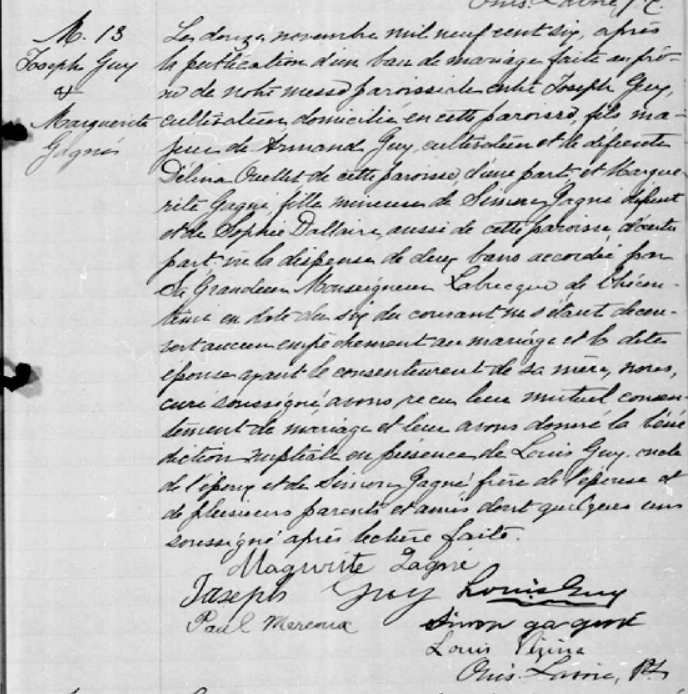 M. 13
Joseph Guy
et
Marguerite
Gagné
Le douze novembre mil neuf cent six, après
la publication d'un ban de mariage faite au prô-
ne de notre messe paroissiale entre Joseph Guy,
cultivateur domicilié en cette paroisse, fils ma-
jeur de Armand Guy, cultivateur et de défunte
Délina Ouellet de cette paroisse d'une part, et Margue-
rite Gagné fille mineure de Simon Gagné défunt
et de Sophie Dallaire, aussi de cette paroisse d'autre
part, vu la dispense de deux bans accordée par
Sa Grandeur Monseigneur Labrecque de Chicou-
timi en date du six du courant ne s'étant décou-
vert aucun empêchement au mariage et la dite
épouse ayant le consentement de sa mère, nous,
curé soussigné avons reçu leur mutuel consen-
tement de mariage et leur avons donné la béné
diction nuptiale en présence de Louis Guy, oncle
de l'époux et de Simon Gagné frère de l'épouse et
de plusieurs parents et amis dont quelques uns
soussigné après lecture faite.
Maguerite Gagné
Joseph Guy Louis Guy
Paul Simon gagné
Louis Vézina
Onis. Lavoie, Ptre